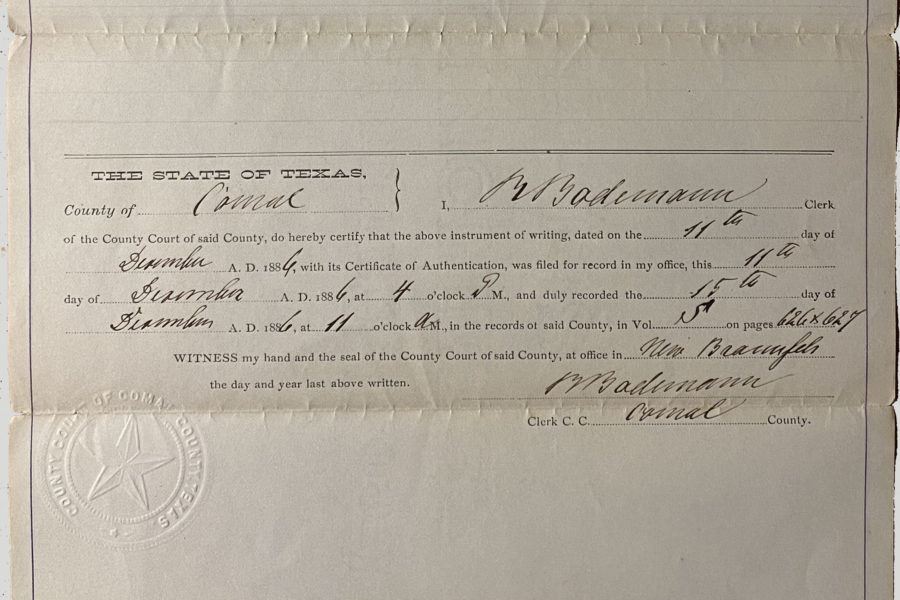 THE STATE OF TEXAS,
County of Comal } I, R Bodemann Clerk
of the County Court of said County, do hereby certify that the above instrument of writing, dated on the 11th day of
December A. D. 1886, with its Certificate of Authentication, was filed for record in my office, this 11th
day of December A. D. 1886, at 4 o'clock P M., and duly recorded the 15th day of
December A. D. 1886, at 11 o'clock a M., in the records of said County, in Vol. on pages 626 & 627
WITNESS my hand and the seal of the County Court of said County, at office in New Braunfels
the day and year last above written. R Bodemann
Clerk C. C. Comal County.
COUNTY COURT OF COMAL COUNTY TEXAS